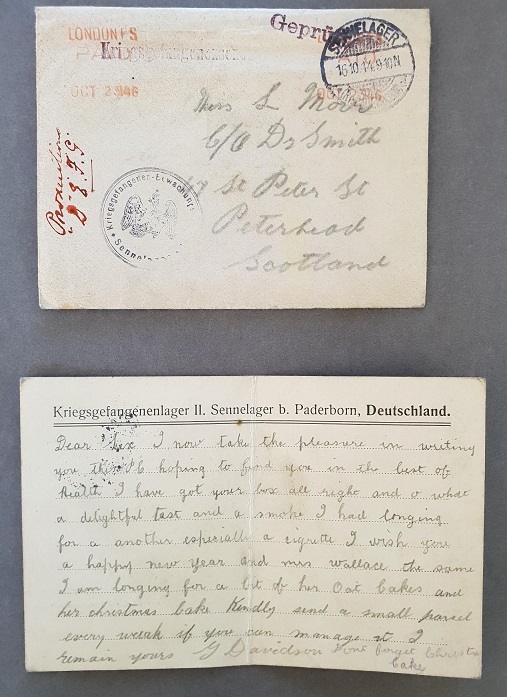 LONDON F.S.
PAID
OCT 23 14
Geprüft
SENNELAGER
16.10.14.9-10N
Miss L Moir
C/O Dr Smith
St Peter St
Peterhead
Scotland
Kriegsgefangenen
Kriegsgefangenenlager II. Sennelager b. Paderborn, Deutschland.
Dear I now take the pleasure in writing
you this P6 hoping to find you in the best of
health I have got your box all right and o what
a delightful tast and a smoke I had longing
for a another especially a cigrette I wish you
a happy new year and mrs wallace the same
I am longing for a bit of her Oat Cakes and
her christmas Cake Kindly send a small parcel
every weak if you can manage it I
remain yours G Davidson dont forget Christm
Cake